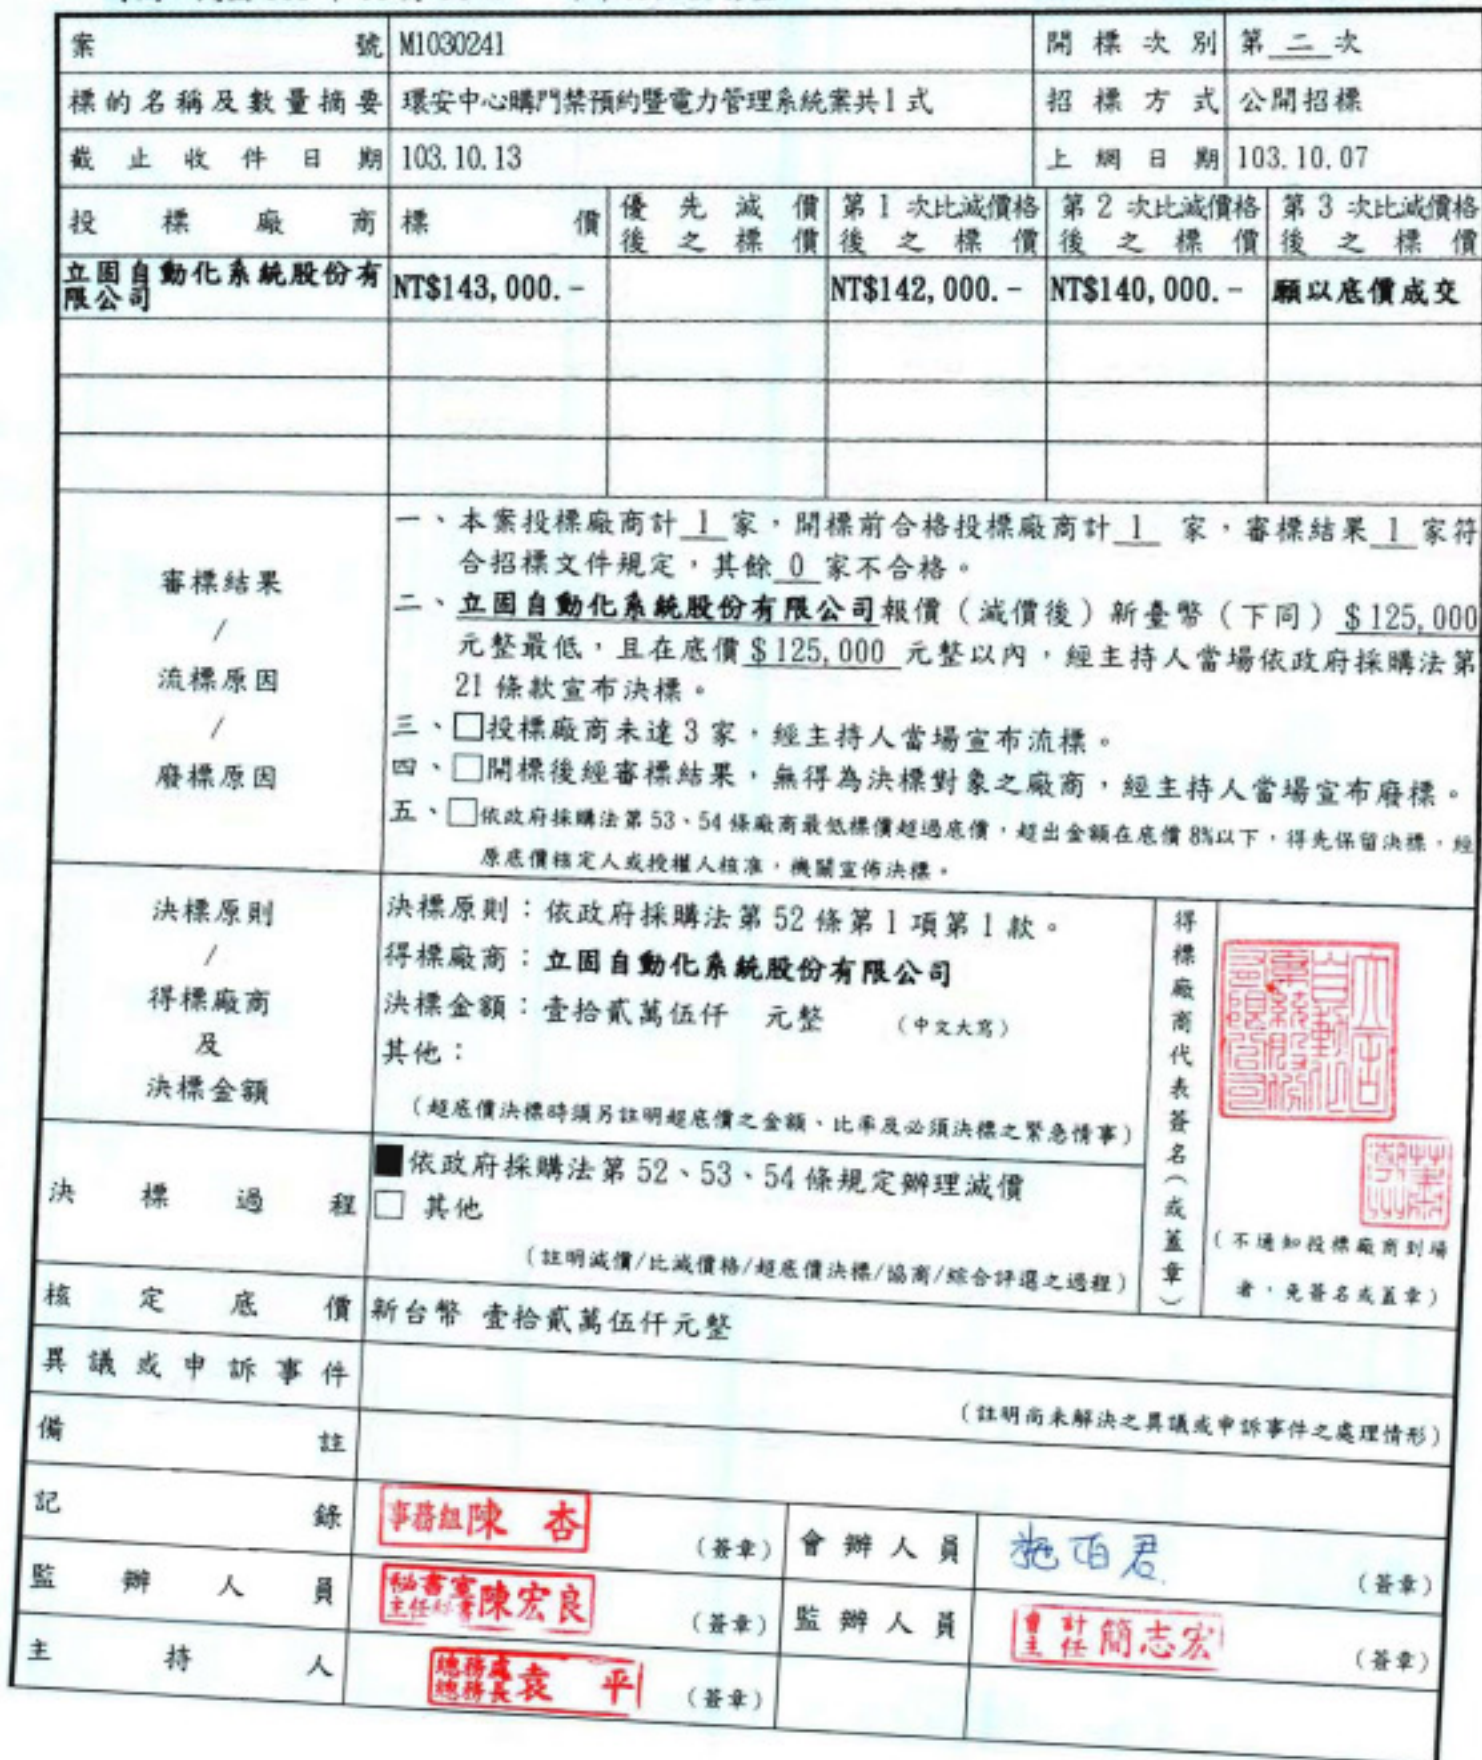 案號 M1030241 開標次別 第 二 次
標的名稱及數量摘要 環安中心購門禁預約暨電力管理系統案共1式 招標方式 公開招標
截止收件日期 103.10.13 上網日期 103.10.07
投標廠商 標價 優先減價後之標價 第1次比減價格後之標價 第2次比減價格後之標價 第3次比減價格後之標價
立固自動化系統股份有限公司 NT$143,000.- NT$142,000.- NT$140,000.- 願以底價成交
審標結果
/
流標原因
/
廢標原因
一、本案投標廠商計 1 家,開標前合格投標廠商計 1 家,審標結果 1 家符
合招標文件規定,其餘 0 家不合格。
二、立固自動化系統股份有限公司報價(減價後)新臺幣(下同)$125,000
元整最低,且在底價$125,000 元整以內,經主持人當場依政府採購法第
21 條款宣布決標。
三、□投標廠商未達3家,經主持人當場宣布流標。
四、□開標後經審標結果,無得為決標對象之廠商,經主持人當場宣布廢標。
五、□依政府採購法第53、54條廠商最低標價超過底價,超出金額在底價8%以下,得先保留決標,經
原底價核定人或授權人核准,機關宣佈決標。
決標原則
/
得標廠商
及
決標金額
決標原則:依政府採購法第52條第1項第1款。
得標廠商:立固自動化系統股份有限公司
決標金額:壹拾貳萬伍仟 元整 (中文大寫)
其他:
(超底價決標時須另註明超底價之金額、比率及必須決標之緊急情事)
得標廠商代表簽名(或蓋章)
(不通知投標廠商到場
者,免簽名或蓋章)
決標過程
■依政府採購法第52、53、54條規定辦理減價
□ 其他
(註明減價/比減價格/超底價決標/協商/綜合評選之過程)
核定底價 新台幣 壹拾貳萬伍仟元整
異議或申訴事件
(註明尚未解決之異議或申訴事件之處理情形)
備註
記錄 事務組陳杏 (簽章) 會辦人員 (簽章)
監辦人員 秘書室主任秘書陳宏良 (簽章) 監辦人員 會計主任簡志宏 (簽章)
主持人 總務處總務長袁平 (簽章)